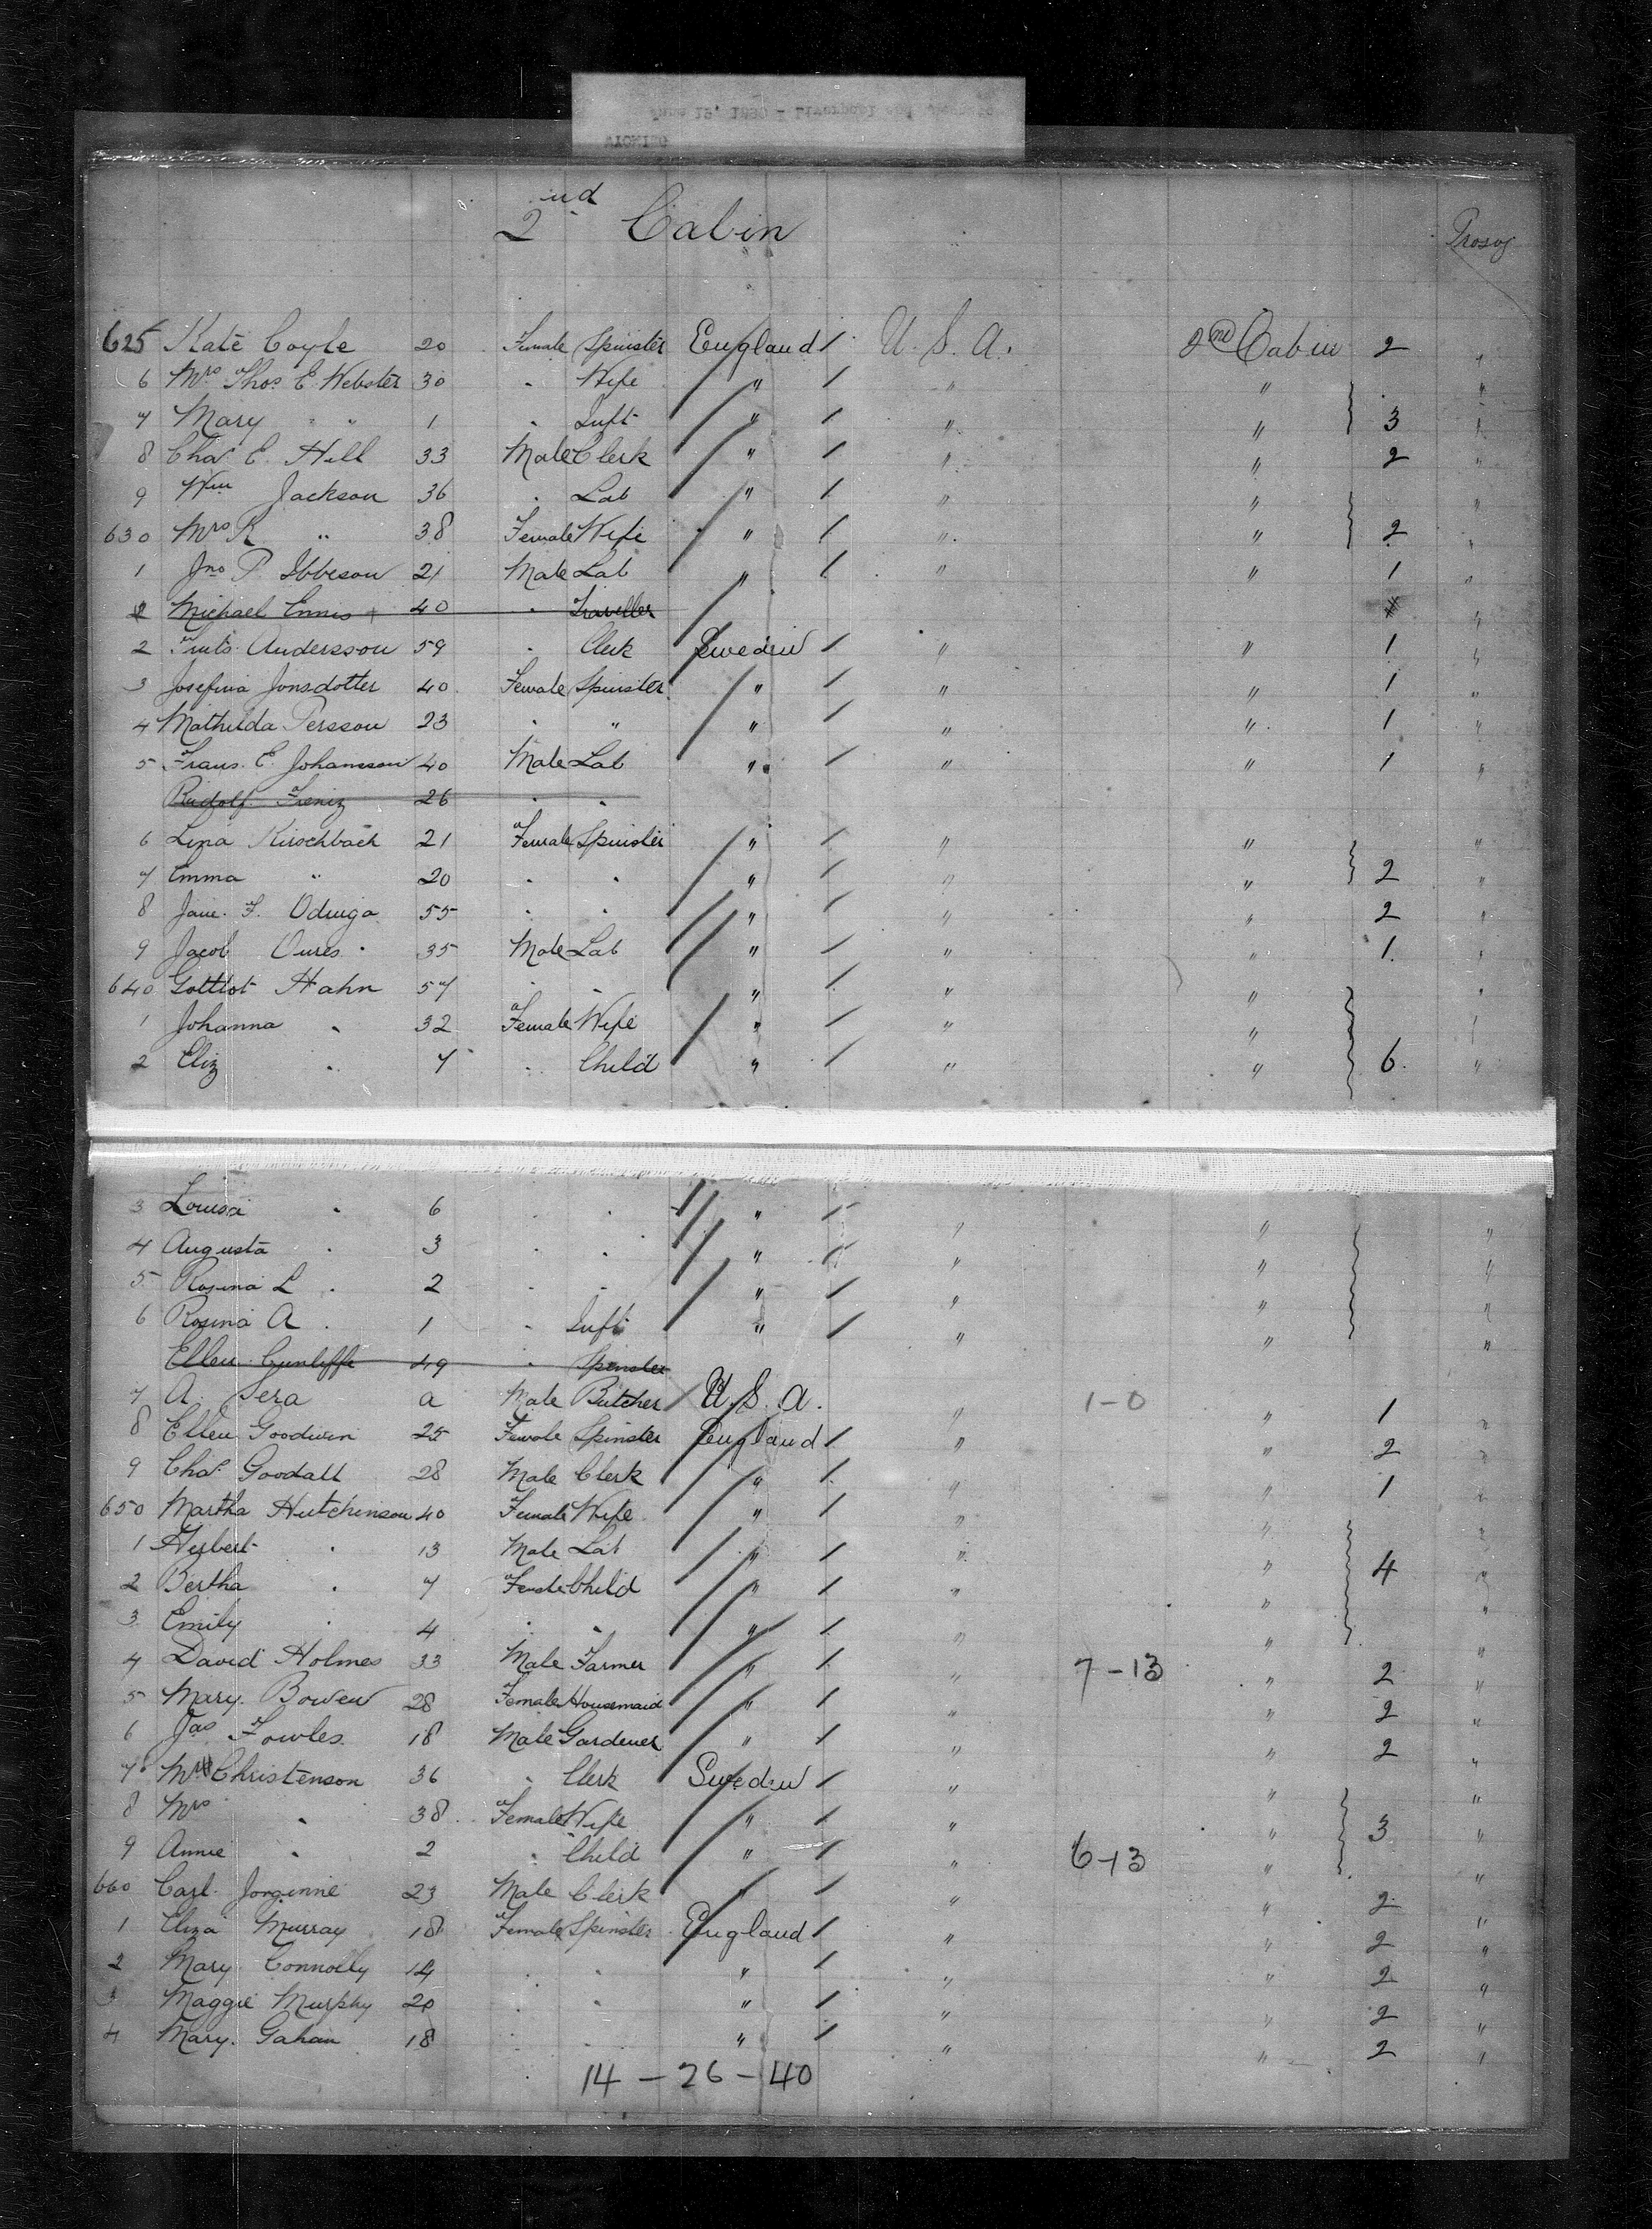 2nd Cabin
625 Kate Coyle 20 Female Spinster England / U. S. A. 2nd Cabin 2 "
6 Mrs Thos. E. Webster 30 " Wife " / " " "
7 Mary " " 1 " Inft " / " " 3 "
8 Chas. E. Hill 33 Male Clerk " / " " 2 "
9 Wm Jackson 36 " Lab " / " " "
630 Mrs R " 38 Female Wife " / " " 2 "
1 Jno P. Ibbeson 21 Male Lab " / " " 1 "
2 Michael Ennis 40 " Traveller "
2 Andersson 59 " Clerk Sweden / " " 1 "
3 Josefina Jonsdotter 40 Female Spinster " / " " 1 "
4 Mathilda Persson 23 " " " / " " 1 "
5 Frans. E. Johansson 40 Male Lab " / " " 1 "
Rudolf 26 " "
6 Lina Kirschbach 21 Female Spinster " / " " "
7 Emma " 20 " " " / " " 2 "
8 Jane. F. Odinga 55 " " " / " " 2 "
9 Jacob 35 Male Lab " / " " 1 "
640 Hahn 57 " " " / " " "
1 Johanna " 32 Female Wife " / " " "
2 Eliz " 7 " Child " / " " 6 "
3 Louisa " 6 " " " / " " "
4 Augusta " 3 " " " / " " "
5 Rosina L " 2 " " " / " " "
6 Rosina A " 1 " Inft " / " " "
Ellen Cunliffe 49 " Spinster
7 A. Sera a Male Butcher U. S. A. " 1-0 " 1 "
8 Ellen Goodwin 25 Female Spinster England / " " 2 "
9 Chas. Goodall 28 Male Clerk " / " " 1 "
650 Martha Hutchinson 40 Female Wife " / " " "
1 Herbert " 13 Male Lab " / " " 4 "
2 Bertha " 7 Female Child " / " " "
3 Emily " 4 " " " / " " "
4 David Holmes 33 Male Farmer " / " 7-13 " 2 "
5 Mary. Bowen 28 Female Housemaid " / " " 2 "
6 Jas Fowles 18 Male Gardener " / " " 2 "
7 Mr Christenson 36 " Clerk Sweden / " " "
8 Mrs " 38 Female Wife " / " " 3 "
9 Annie " 2 " Child " / " 6-13 " "
660 Carl 23 Male Clerk " / " " 2 "
1 Eliza Murray 18 Female Spinster England / " " 2 "
2 Mary Connolly 14 " " " / " " 2 "
3 Maggie Murphy 20 " " " / " " 2 "
4 Mary. Gahan 18 " " " / " " 2 "
14 - 26 - 40